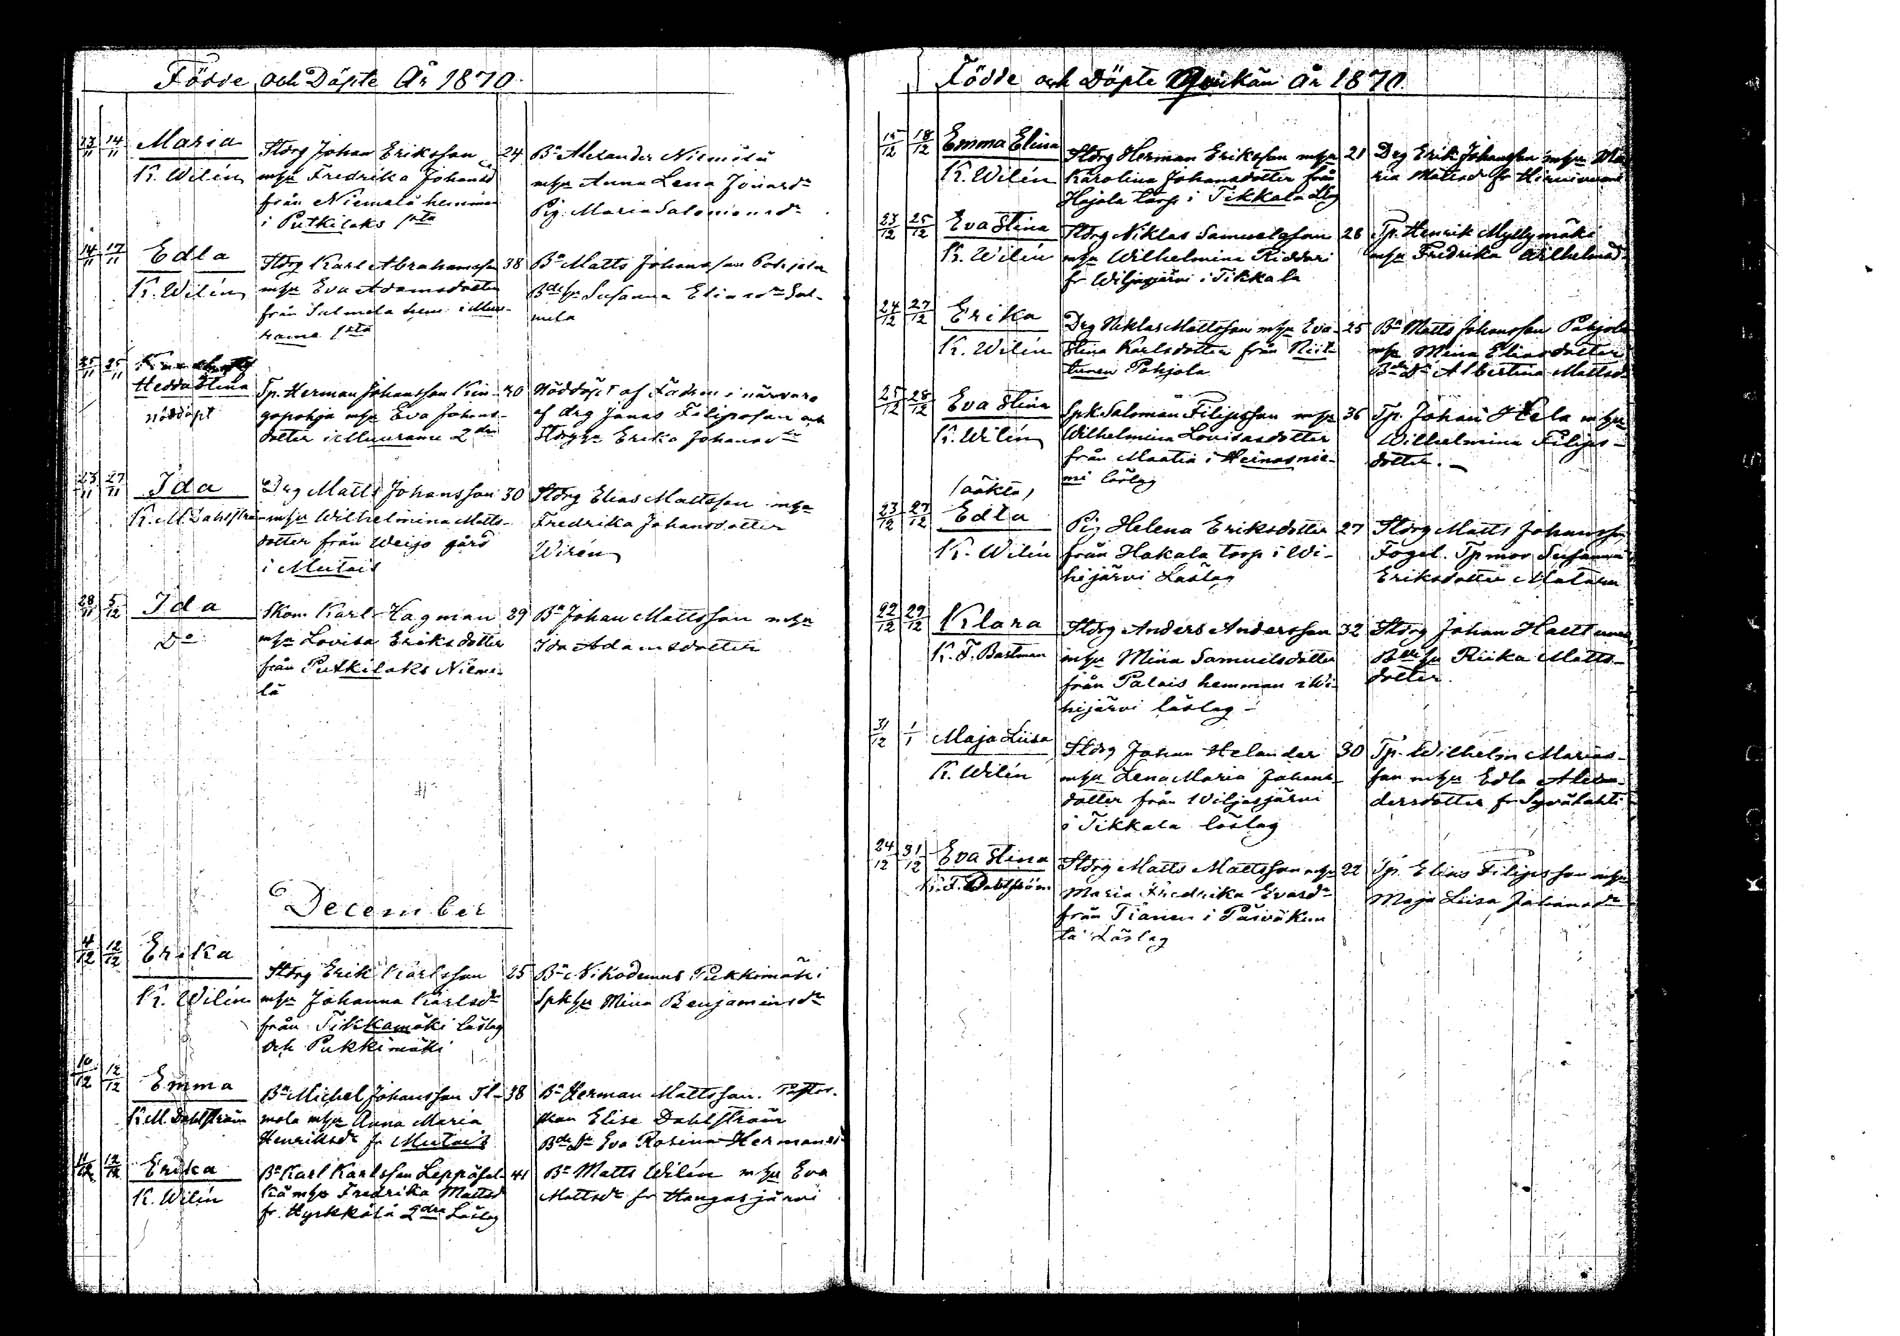 Födde och Döpte År 1870.
13/11 14/11 Maria
K. Wilén
Stdrg Johan Eriksson 24
m hu Fredrika Johansd
från Niemelä hemman
i Putkilaks 1sta
Bn Alexander Niemelä
mhu Anna Lena Jonasdr
Pig. Maria Salomonsdr
14/11 17/11 Edla
K. Wilén
Stdrg Karl Abrahamsson 38
mhu Eva Adamsdotter
från Salmela hem. i Muu-
rame 1sta
Bn Matts Johansson Pohjola
Bdehu Susanna Eliasdr Sal-
mela
25/11 25/11
Hedda Stina
nöddöpt
Tp. Herman Johansson Kin- 40
gopohja mhu Eva Johans-
dotter i Muurame 2dra
Nöddöpt af Fadren i närvaro
af drg Jonas Filipsson och
Stdrghu Erika Johansdr
23/11 27/11 Ida
K. M. Dahlström
Drg Matts Johansson 30
mhu Wilhelmina Matts-
dotter från Weijo gård
i Mutais
Stdrg Elias Mattsson mhu
Fredrika Johansdotter
Wirén
28/11 5/12 Ida
Do
Skom. Karl Hagman 29
mhu Lovisa Eriksdotter
från Putkilaks Nieme-
lä
Bn Johan Mattsson mhu
Ida Adamsdotter
December
4/12 12/12 Erika
K. Wilén
Stdrg Erik Karlsson 25
mhu Johanna Karlsdr
från Tikkamäki läslag
och Pukkimäki
Bn Nikodemus Pukkimäki
Spkhu Mina Benjaminsdr
10/12 12/12 Emma
K. M. Dahlström
Bn Michel Johansson Il- 38
mola mhu Anna Maria
Henriksdr fr Mutais
Bn Herman Mattsson. Pastor-
skan Elise Dahlström
Bde Dr Eva Rosina Hermansd
11/12 12/12 Erika
K. Wilén
Bn Karl Karlsson Leppäsel- 41
kä mhu Fredrika Mattsd
fr. Hyrkkälä 2dra Läslag
Bn Matts Wilén mhu Eva
Mattsdr fr Hangasjärvi
Födde och Döpte År 1870.
15/12 18/12 Emma Elina
K. Wilén
Stdrg Herman Eriksson mhu 21
Karolina Johansdotter från
Hajola torp i Tikkala Llg
Drg Erik Johansson mhu Ma
ria Mattsd fr
23/12 25/12 Eva Stina
K. Wilén
Stdrg Niklas Samuelsson 28
mhu Wilhelmina Riddari
fr Wiljasjärvi i Tikkala
Tp. Henrik Myllymäki
mhu Fredrika Wilhelmsd
24/12 27/12 Erika
K. Wilén
Drg Niklas Mattsson mhu Eva 25
Stina Karlsdotter från Niit-
tunen Pohjola
Bn Matts Johansson Pohjola
mhu Mina Eliasdotter
Bde Dr Albertina Mattsdr
25/12 28/12 Eva Stina
K. Wilén
Spk Saloman Filipsson mhu 36
Wilhelmina Lovisasdotter
från Maatia i Heinosnie-
mi läslag
Tp. Johan Hela mhu
Wilhelmina Filips-
dotter. —
(oäkta)
23/12 27/12 Edla
K. Wilén
Pig Helena Eriksdotter 27
från Hakala torp i Wi-
hijärvi Läslag
Stdrg Matts Johansson
Fogel. Tpmor Susanna
Eriksdotter
22/12 29/12 Klara
K. F. Bastman
Stdrg Anders Andersson 32
mhu Mina Samuelsdotter
från Palais hemman i Wi-
hijärvi läslag -
Stdrg Johan
Bdehu Riika Matts-
dotter.
31/12 1/1 Maja Liisa
K. Wilén
Stdrg Johan Helander 30
mhu Lena Maria Johans-
dotter från Wiljasjärvi
i Tikkala läslag
Tp. Wilhelm Marias-
son mhu Edla Alexan-
dersdotter fr Syvälahti
24/12 31/12 Eva Stina
K. F. Dahlström
Stdrg Matts Mattsson mhu 22
Maria Fredrika Evasdr
från Tianen i Päiväkun
ta Läslag
Tp. Elias Filipsson mhu
Maja Liisa Johansdr
KODAK SAFETY